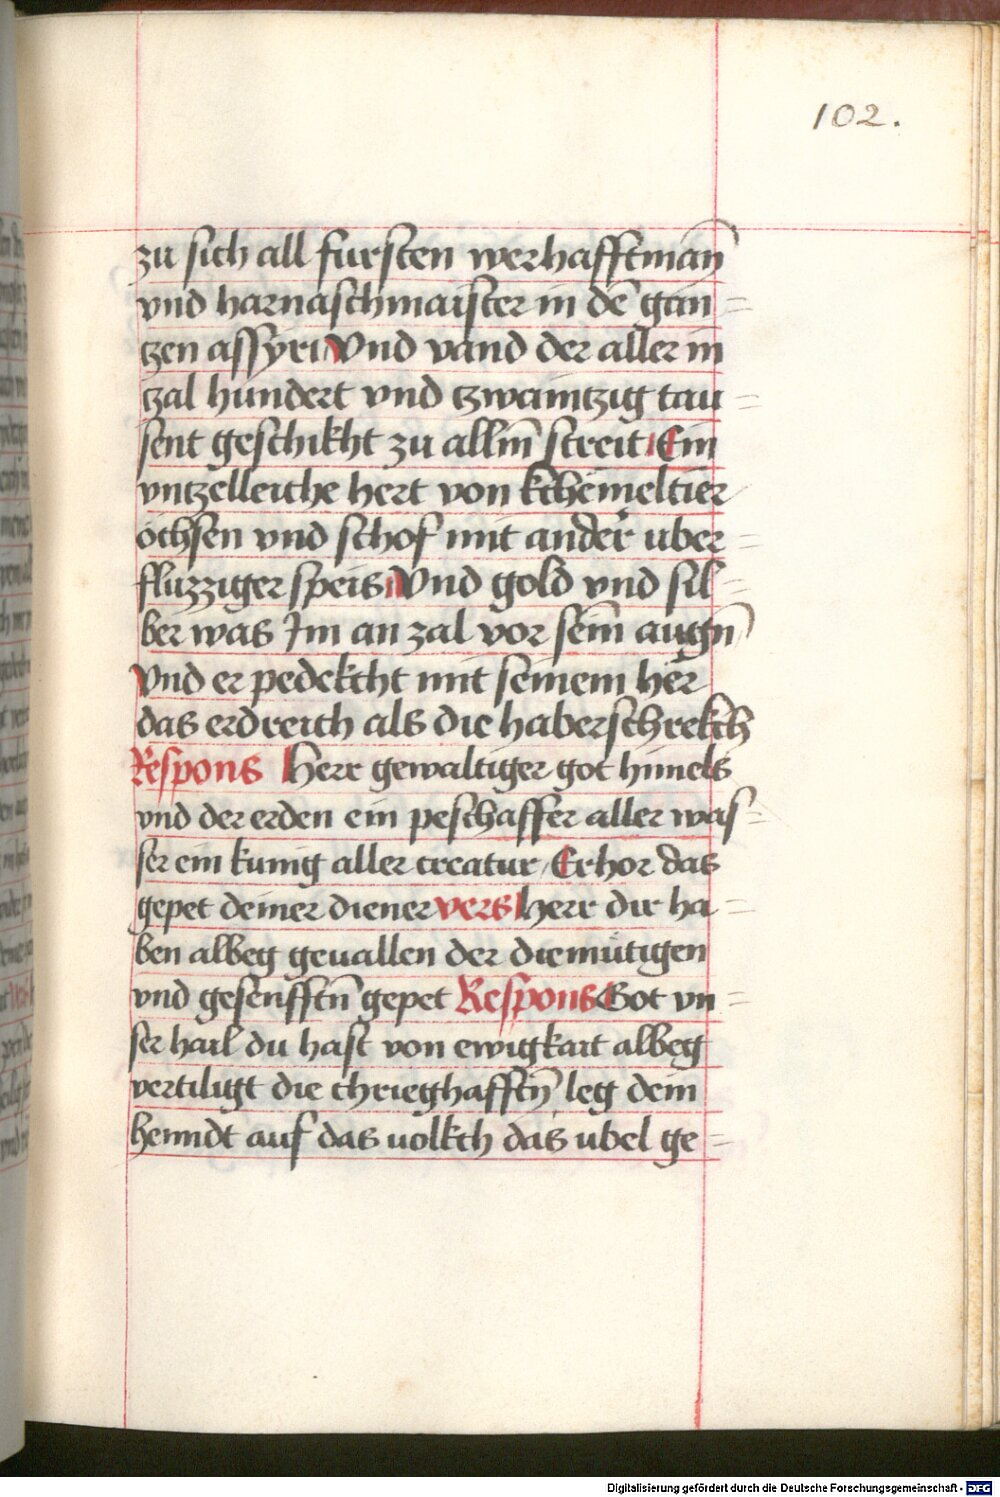 102.
zu sich all fursten werhafftman̄
vnd harnaschmaister in de᷑ gan=
tzen assyri Vnd vand der aller in
tzal hundert vnd tzwaintzig tau=
sent geschikht zu allm̄ streit Ein
vntzelleiche hert von kchemeltier
ochsen vnd schof mit ander uber=
fluzziger speis Vnd gold vnd sil=
ber was Im an zal vor sem̄ augn̄
Vnd er pedekcht mit seinem her
das erdreich als die haberschrekch
Respons Herr gewaltiger got himels
vnd der erden ein peschaffer aller was=
ser ein kunig aller creatur / Erhor das
gepet deiner diener vers Herr dir ha=
ben albeg geuallen der diemütigen
vnd gesenfftn̄ gepet Respons Got vn=
ser hail du hast von ewigkait albeg
vertiligt die chrieghafftn̄ leg dein
henndt auf das uolkch das ubel ge=
Digitalisierung gefördert durch die Deutsche Forschungsgemeinschaft - DFG